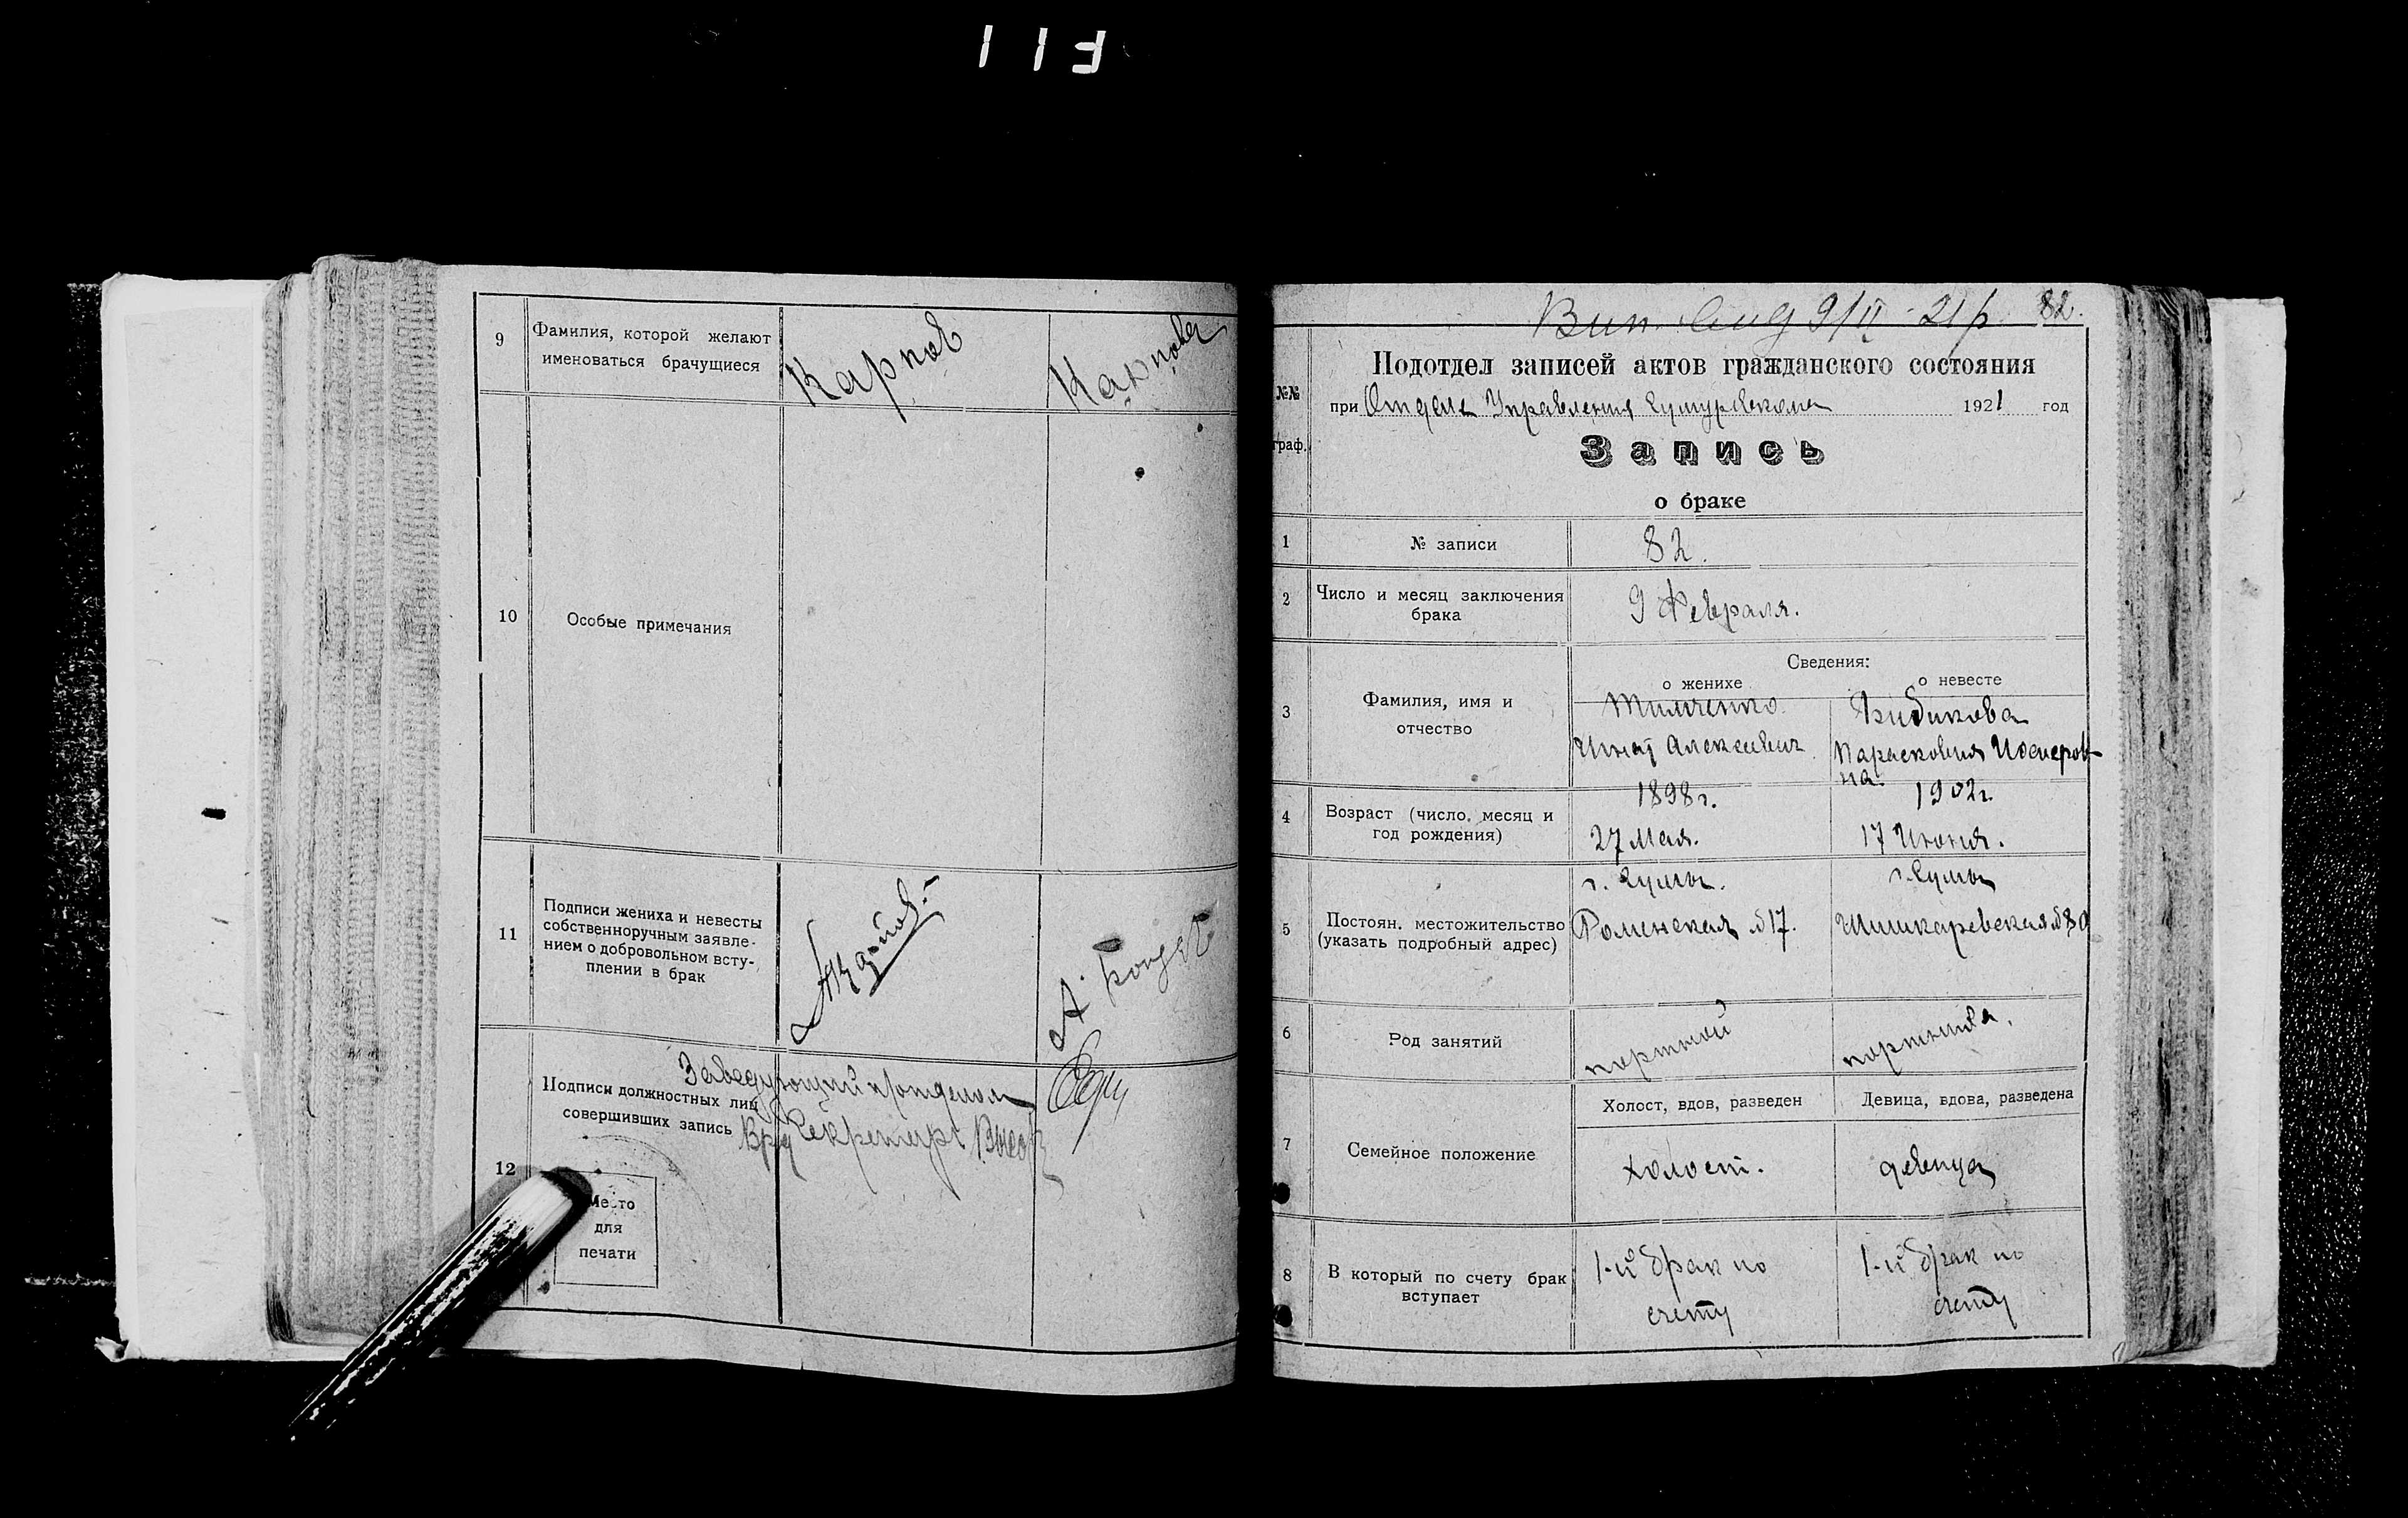 113
9
Фамилия, которой желают
именоваться брачущиеся
Карпов
Карпова
10
Особые примечания
11
Подписи жениха и невесты
собственноручным заявле-
нием о добровольном всту-
плении в брак
12
Подписи должностных лиц
совершивших запись
Заведующий п/отделом
Секретарь
Место
для
печати
Вип. 9/II 21 р. 82.
№№
граф.
Подотдел записей актов гражданского состояния
при Отделе Управления Сумуревкома 1921 год
Запись
о браке
1
№ записи
82.
2
Число и месяц заключения
брака
9 Февраля.
3
Фамилия, имя и
отчество
Сведения:
о женихе
о невесте
Тимченко
Игнат Алексеевич
Бибикова
Парасковия
на
4
Возраст (число, месяц и
год рождения)
1898 г.
27 Мая.
1902 г.
17 Июня.
5
Постоян. местожительство
(указать подробный адрес)
г. Сумы.
Роменская № 17.
г. Сумы
Шишкаревская № 80
6
Род занятий
портной
портниха.
7
Семейное положение
Холост, вдов, разведен
Девица, вдова, разведена
холост.
девица
8
В который по счету брак
вступает
1-й брак по
счету
1-й брак по
счету